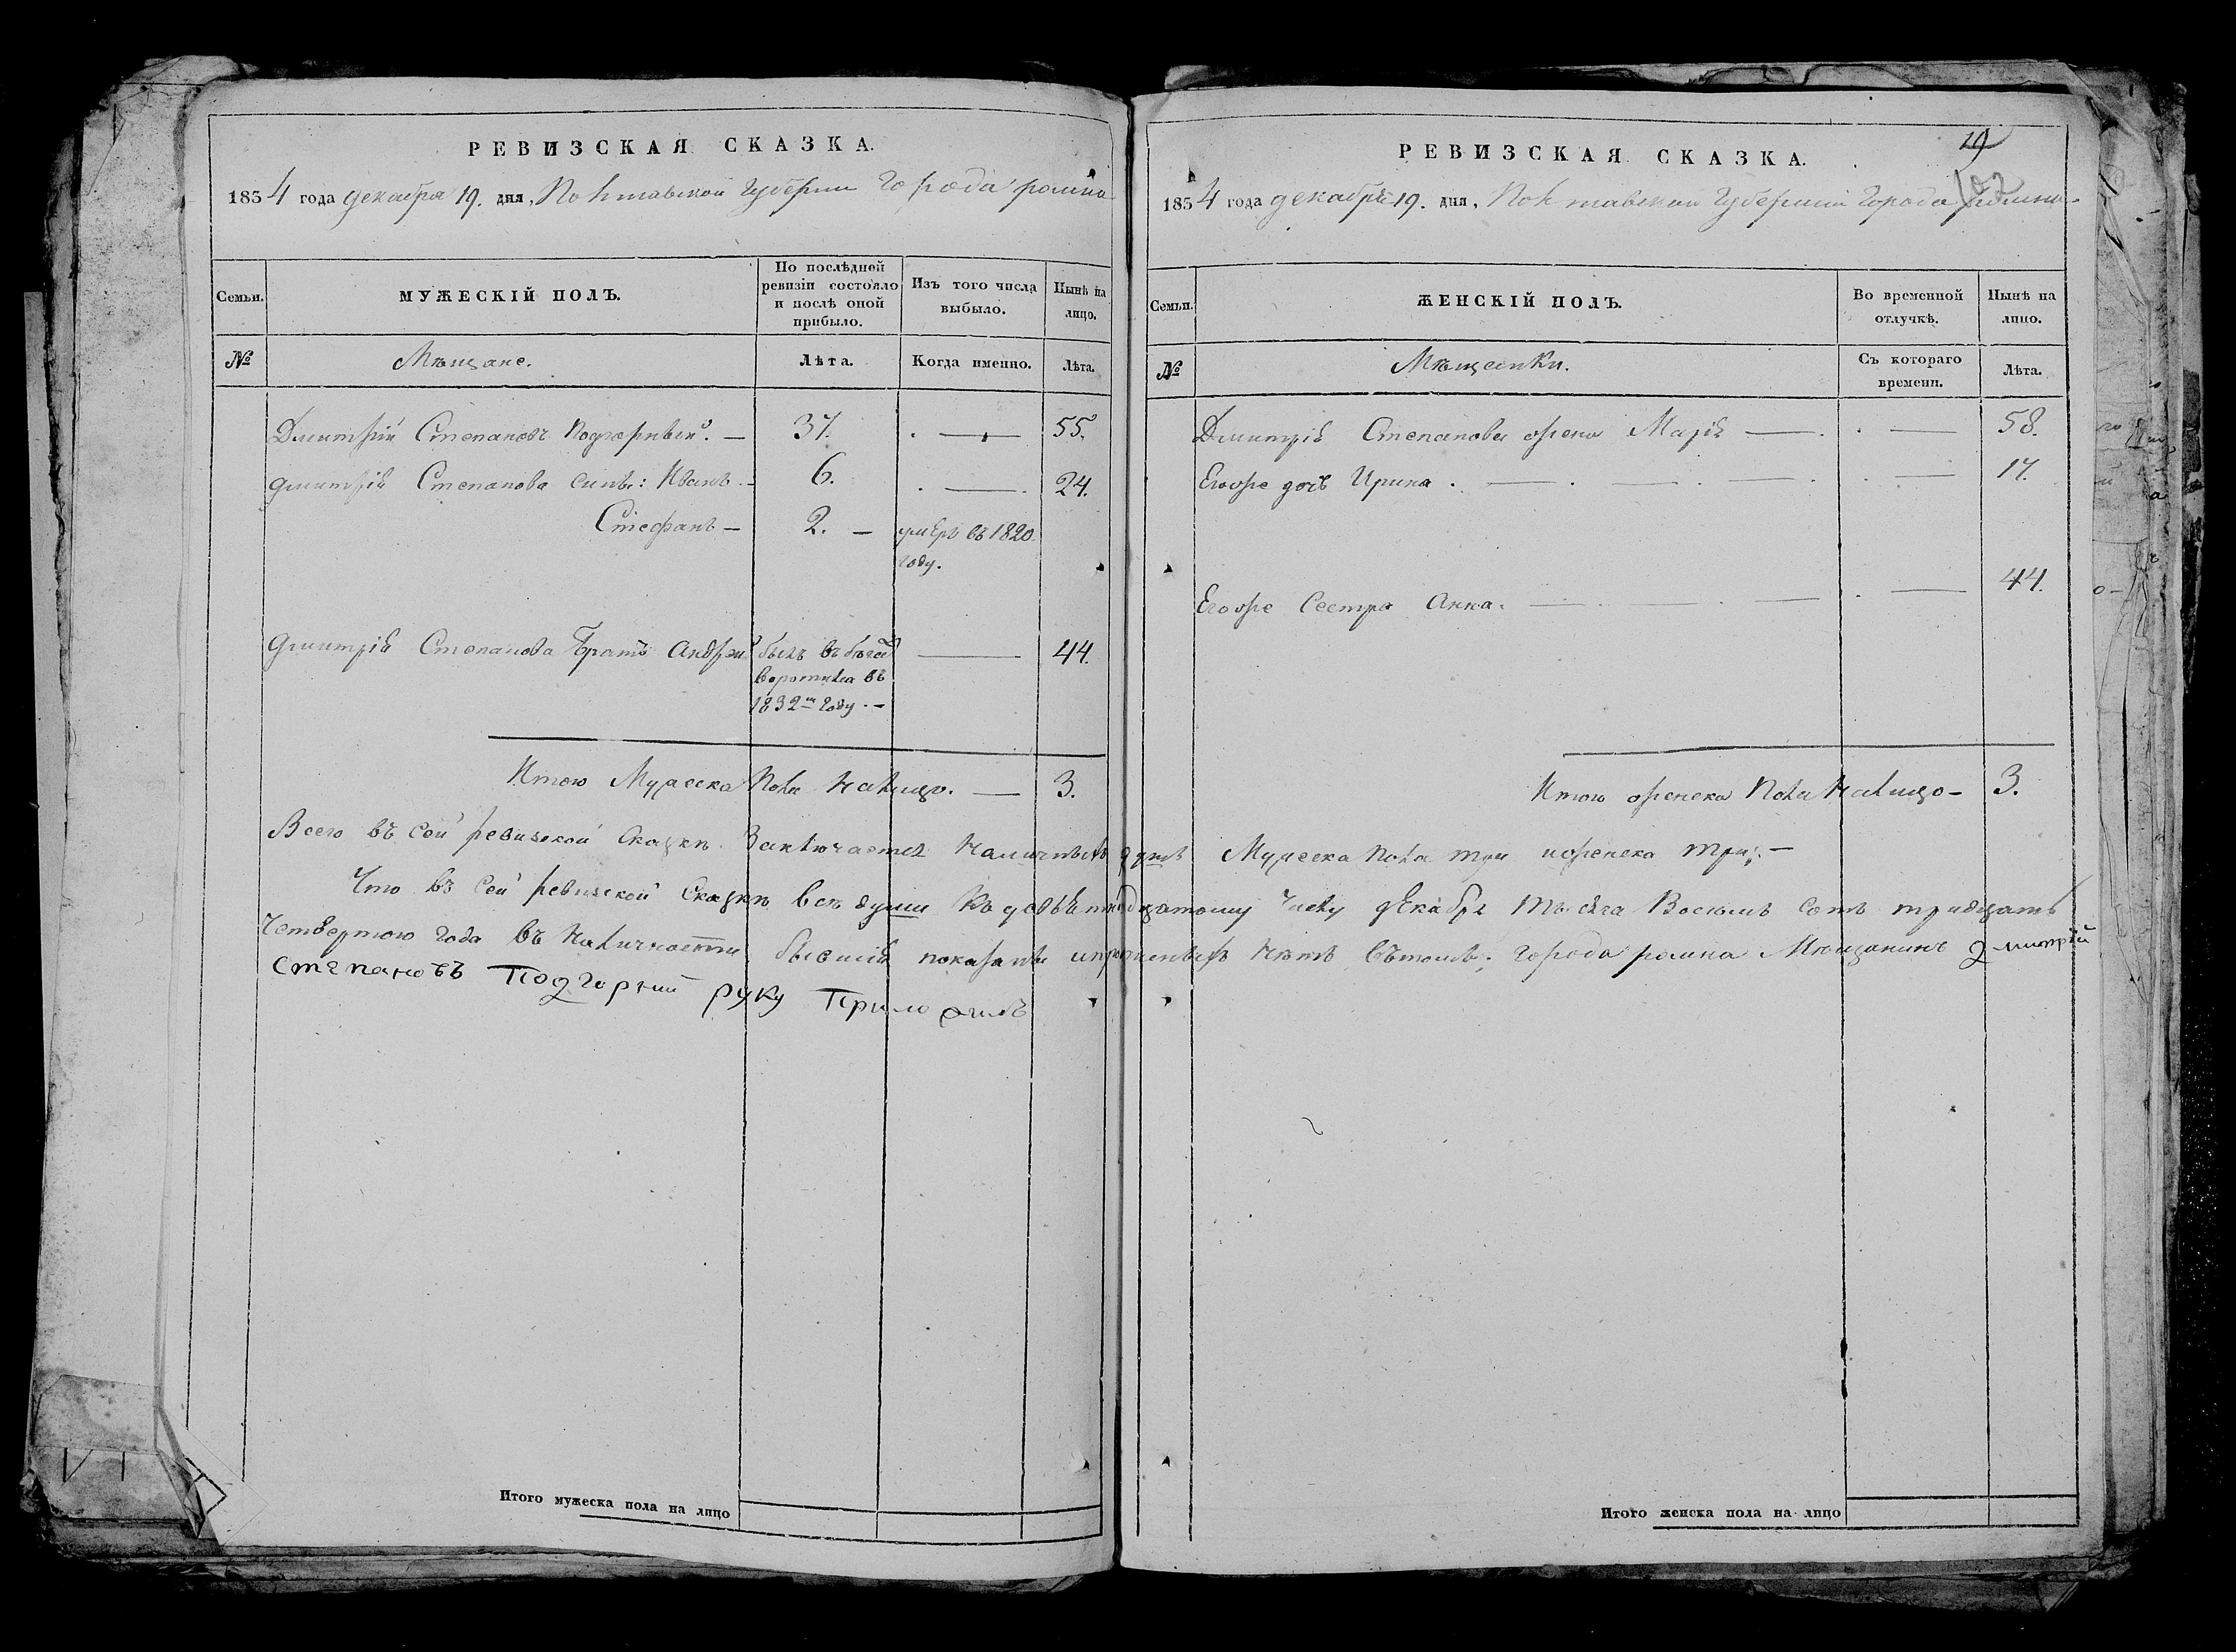 РЕВИЗСКАЯ СКАЗКА.
1834 года декабря 19. дня, Полтавской Губернии Города ромна
Семьи.
МУЖЕСКІЙ ПОЛЪ.
По послѣдней ревизіи состояло и послѣ оной прибыло.
Изъ того числа выбыло.
Нынѣ на лицо.
№
Мѣщане.
Лѣта.
Когда именно.
Лѣта.
Дмитрій Степановъ Подгорный. — 37. — 55.
Дмитрія Степанова сынъ: Иванъ — 6. — 24.
Стефанъ — 2. — умеръ въ 1820
году.
Дмитрія Степанова Братъ Андрей былъ въ бѣгах — 44.
воротился въ
1832м Году. —
Итого Мужеска Пола Налицо. — 3.
РЕВИЗСКАЯ СКАЗКА.
19
102
1834 года декабря 19. дня, Полтавской Губерніи Города ромна.
Семьи.
ЖЕНСКІЙ ПОЛЪ.
Во временной отлучкѣ.
Нынѣ на лицо.
№
Мѣщанки.
Съ котораго времени.
Лѣта.
Дмитрія Степанова жена Марія — . — 58.
Егоже дочь Ирина . — . — . — . — 17.
Егоже Сестра Анна. — . — . — . — 44.
Итого женска Пола Налицо — 3.
Всего въ сей ревизской Сказкѣ Заключается Наличныхъ душъ Мужеска пола три иженска три; —
Что въ сей ревизской Сказкѣ всѣ души Къ девѣтнадцатому Числу декабря Тысяча Восемъ сотъ тридцать
Четвертого Года въ Наличности бывшія показаны ипрописныхъ Нѣтъ вътомъ; города ромна Мѣщанинъ дмитрій
степановъ Подгорний руку Приложилъ
Итого мужеска пола на лицо
Итого женска пола на лицо